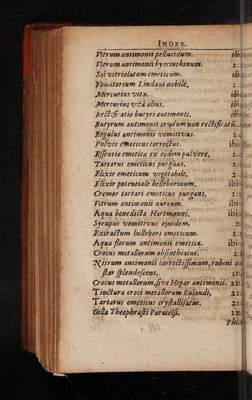 INDEX.
Vitrum antimonii pellucidum. ibi
Vitrum antimonii hyacinthinum. 2
Sal vitriolatum emeticum. ibi
Vomitorium Lindani nobile.
Mercurius vitæ. ibi
Mercurius vitæ alius. ibi
Rectificatio butyri antimonii. ibi
Butyrum antimonii crudum non rectificatū.
Regulus antimonii vomitivus. 2
Pulvis emeticus correctus. ibi
Essentia emetica ex eodem pulvere. 2
Tartarus emeticus purgans. 2
Elixir emeticum vegetabile. 2
Elixir potentiale helleborinum. ibi
Cremor tartari emeticus purgans. 2
Vitrum antimonii aureum. ibi
Aqua benedicta Hartmanni. ibi
Syrupus vomitivus ejusdem. 2
Extractum hellebori emeticum. 2
Aqua florum antimonii emetica. ibi
Crocus metallorum absinthiacus. 2
Nitrum antimonii correctissimum, rubini
star splendescens. 2
Crocus metallorum, sive Hepar antimonii. 2
Tinctura croci metallorum Rulandi. 2
Tartarus emeticus crystallisatus. 2
Gilla Theophrasti Paracelsi. 2